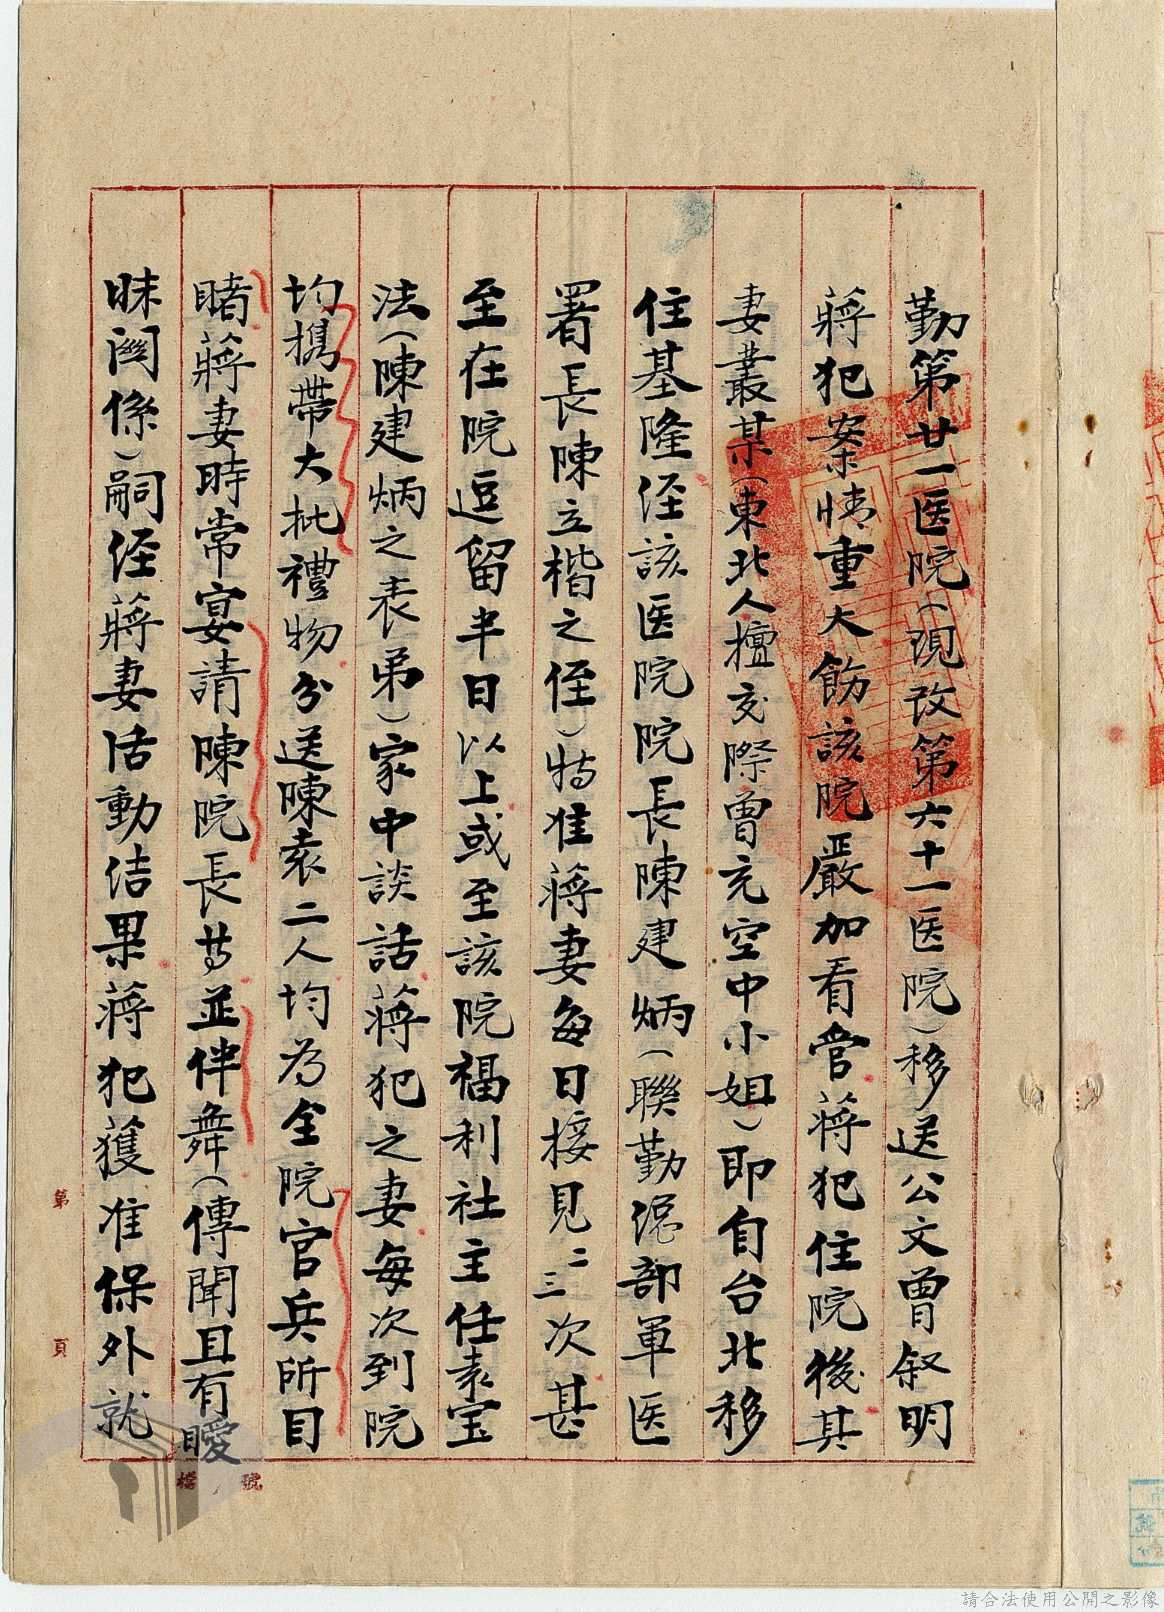 勤第廿一医院（現改第六十一医院）移送公文曾叙明
蔣犯案情重大飭該院嚴加看管蔣犯住院後其
妻叢某（東北人擅交際曾充空中小姐）即自台北移
住基隆径該医院院長陳建炳（聯勤總部軍医
署長陳立楷之侄）特准蔣妻每日接見二三次甚
至在院逗留半日以上或至該院福利社主任袁宝
法（陳建炳之表弟）家中談話蔣犯之妻每次到院
均携帶大批禮物分送陳袁二人均為全院官兵所目
睹蔣妻時常宴請陳院長等並伴舞（傳聞且有曖
昧関係）嗣径蔣妻活動结果蔣犯獲准保外就
第 頁
檔 號
請合法使用公開之影像